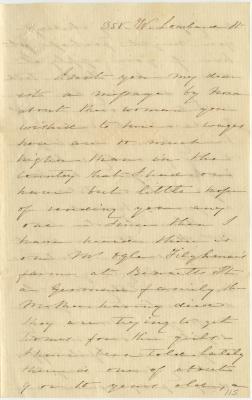 358. W. Lombard St
I sent you my dear
with a message by
about the woman you
wished to hire - wages
here are so much
higher than in the
country that I had
but little hope
of sending you any
one - Since then I
have heard there is
on Mr Ogle Tilghman's
farm at Bennetts
a German family the
Mother having died
they are trying to get
homes for the girls -
told Lately
there is one of about
9 or 10 years old, a
115